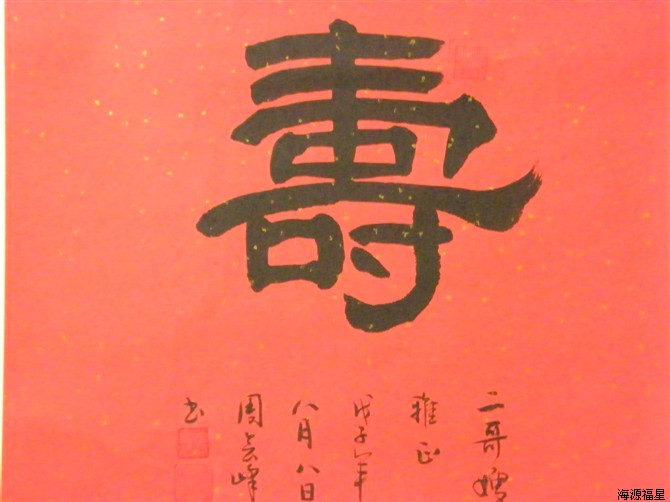 壽
二哥嫂
雅正
戊子年
八月八日
周云峰
书
海源福星